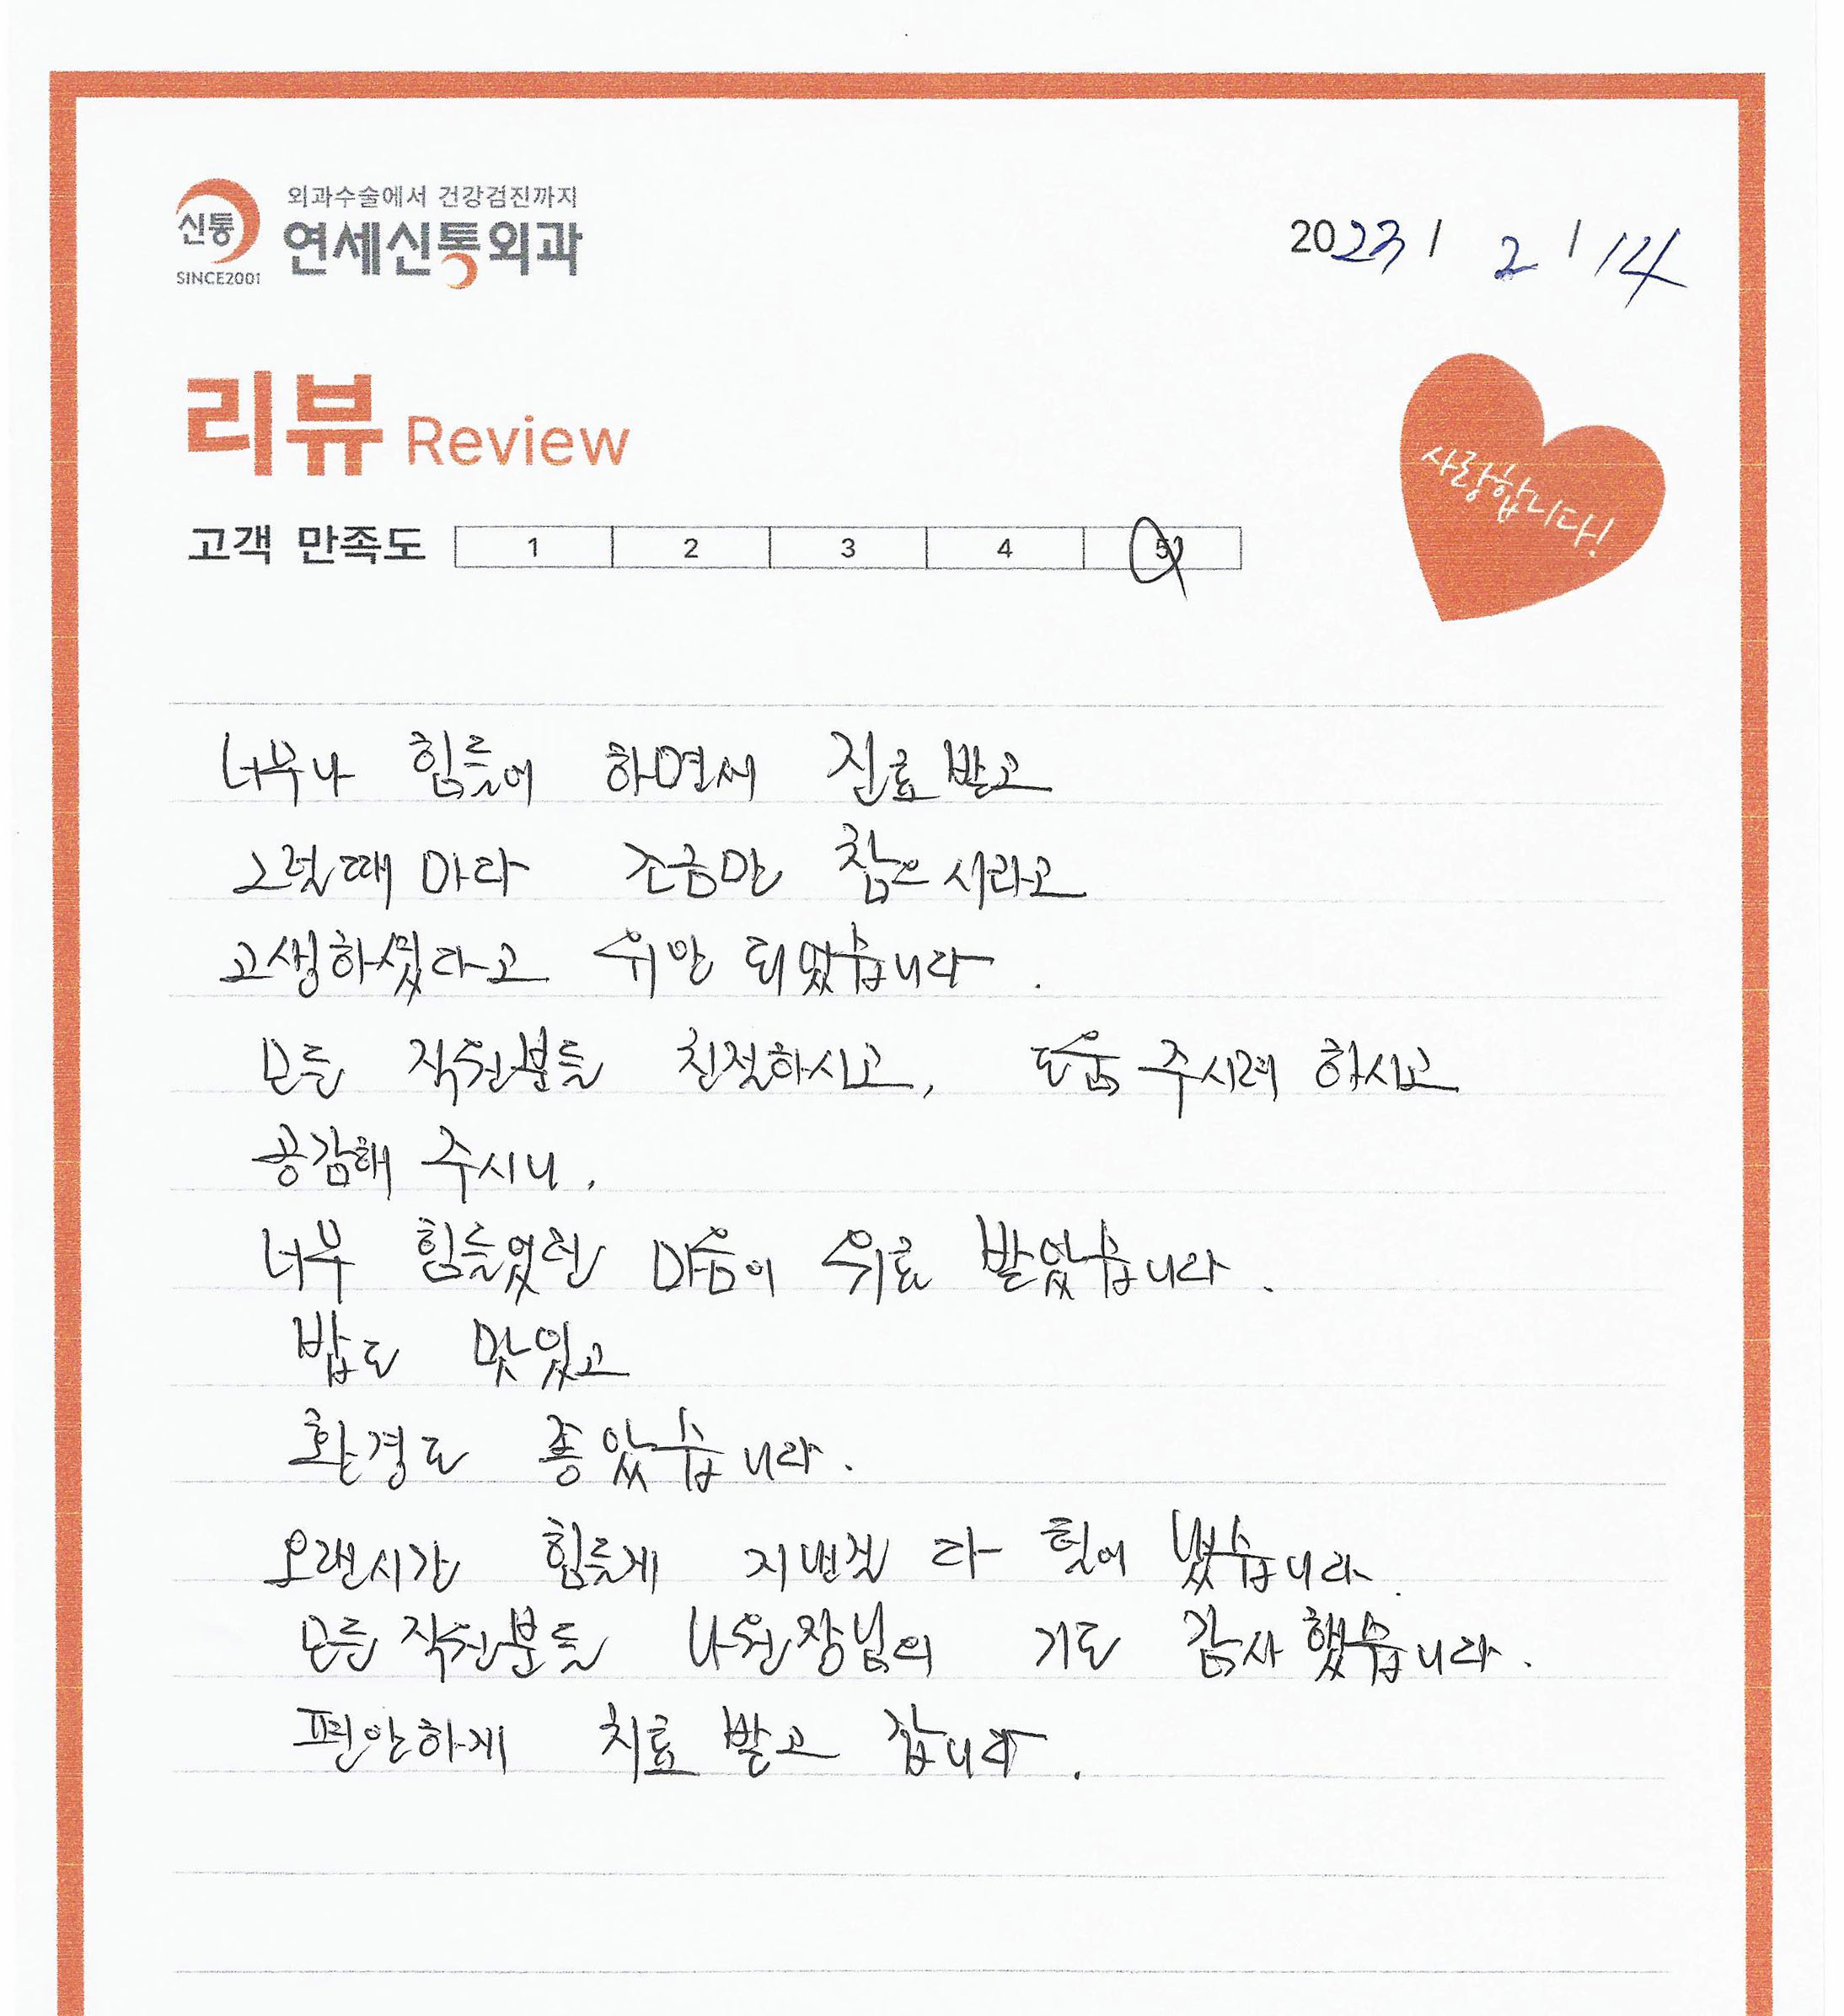 외과수술에서 건강검진까지
신통 연세신통외과
SINCE2001
2023 / 2 / 14
리뷰 Review
사랑합니다!
고객 만족도 1 2 3 4 5
너무나 힘들어 하면서 진료 받고
그럴때 마다 조금만 참으시라고
고생하셨다고 위안 되었습니다.
모든 직원분들 친절하시고, 도움 주시려 하시고
공감해 주시니,
너무 힘들었던 마음이 위로 받았습니다.
밥도 맛있고
환경도 좋았습니다.
오랜시간 힘들게 지낸것 다 털어 냈습니다.
모든 직원분들 나원장님의 기도 감사했습니다.
편안하게 치료 받고 갑니다.